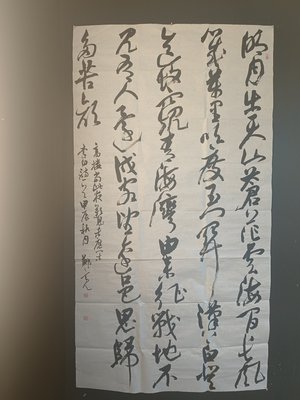 明月出天山蒼茫雲海间长風
幾萬里吹度玉门関漢下白登
道胡窺青海灣由来征戰地不
見有人還戍客望邊邑思歸
多苦颜
高樓當此夜歎息未應闲
李白詩 甲辰秋月